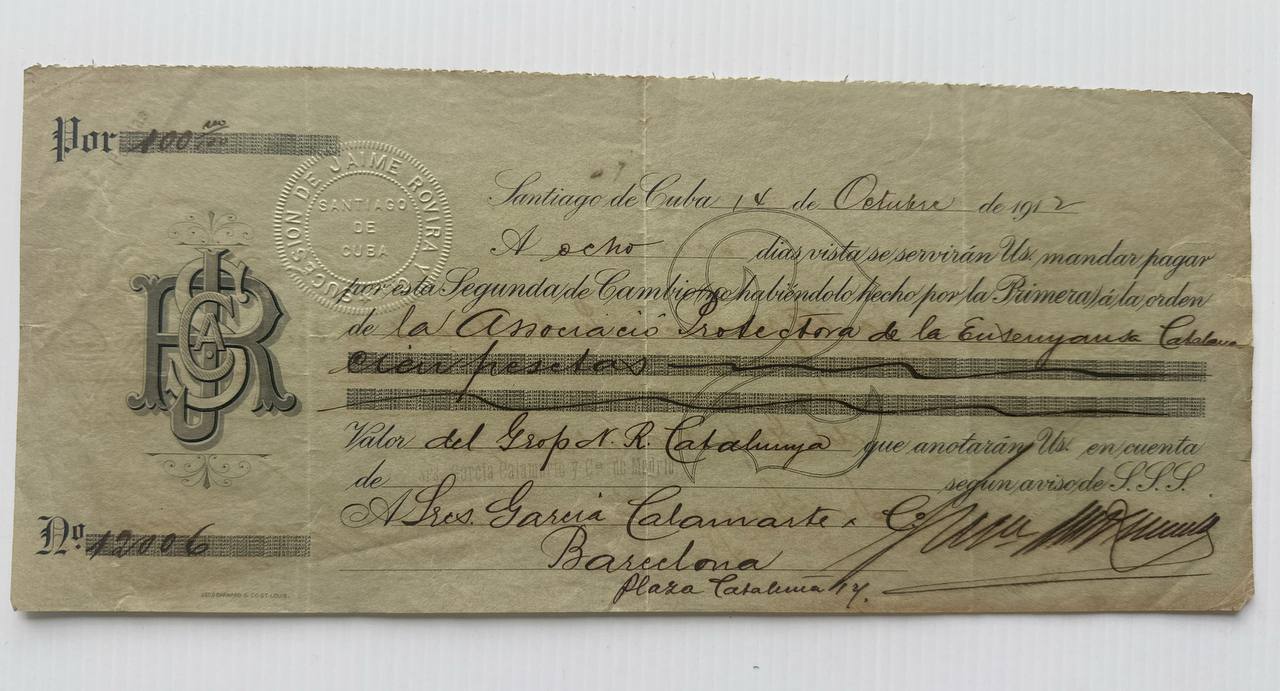 Por 100 00/100
SUCESION DE JAIME ROVIRA
SANTIAGO
DE
CUBA
Santiago de Cuba 14 de Octubre de 1912
A ocho dias vista se servirán Us. mandar pagar
por esta Segunda de Cambio (no habiéndolo hecho por la Primera) á la orden
de la Associació Protectora de la Ensenyansa Catalana
cien pesetas
Valor del Grop N. R. Catalunya que anotarán Us. en cuenta
García Calamarte y Cª. de Madrid
de segun aviso de S.S.S.
A Sres. García Calamarte & Cº
Barcelona
Plaza Cataluña 17.
JCRSA
2
Nº. 12006
GEO.D.BARNARD & CO.ST.LOUIS.